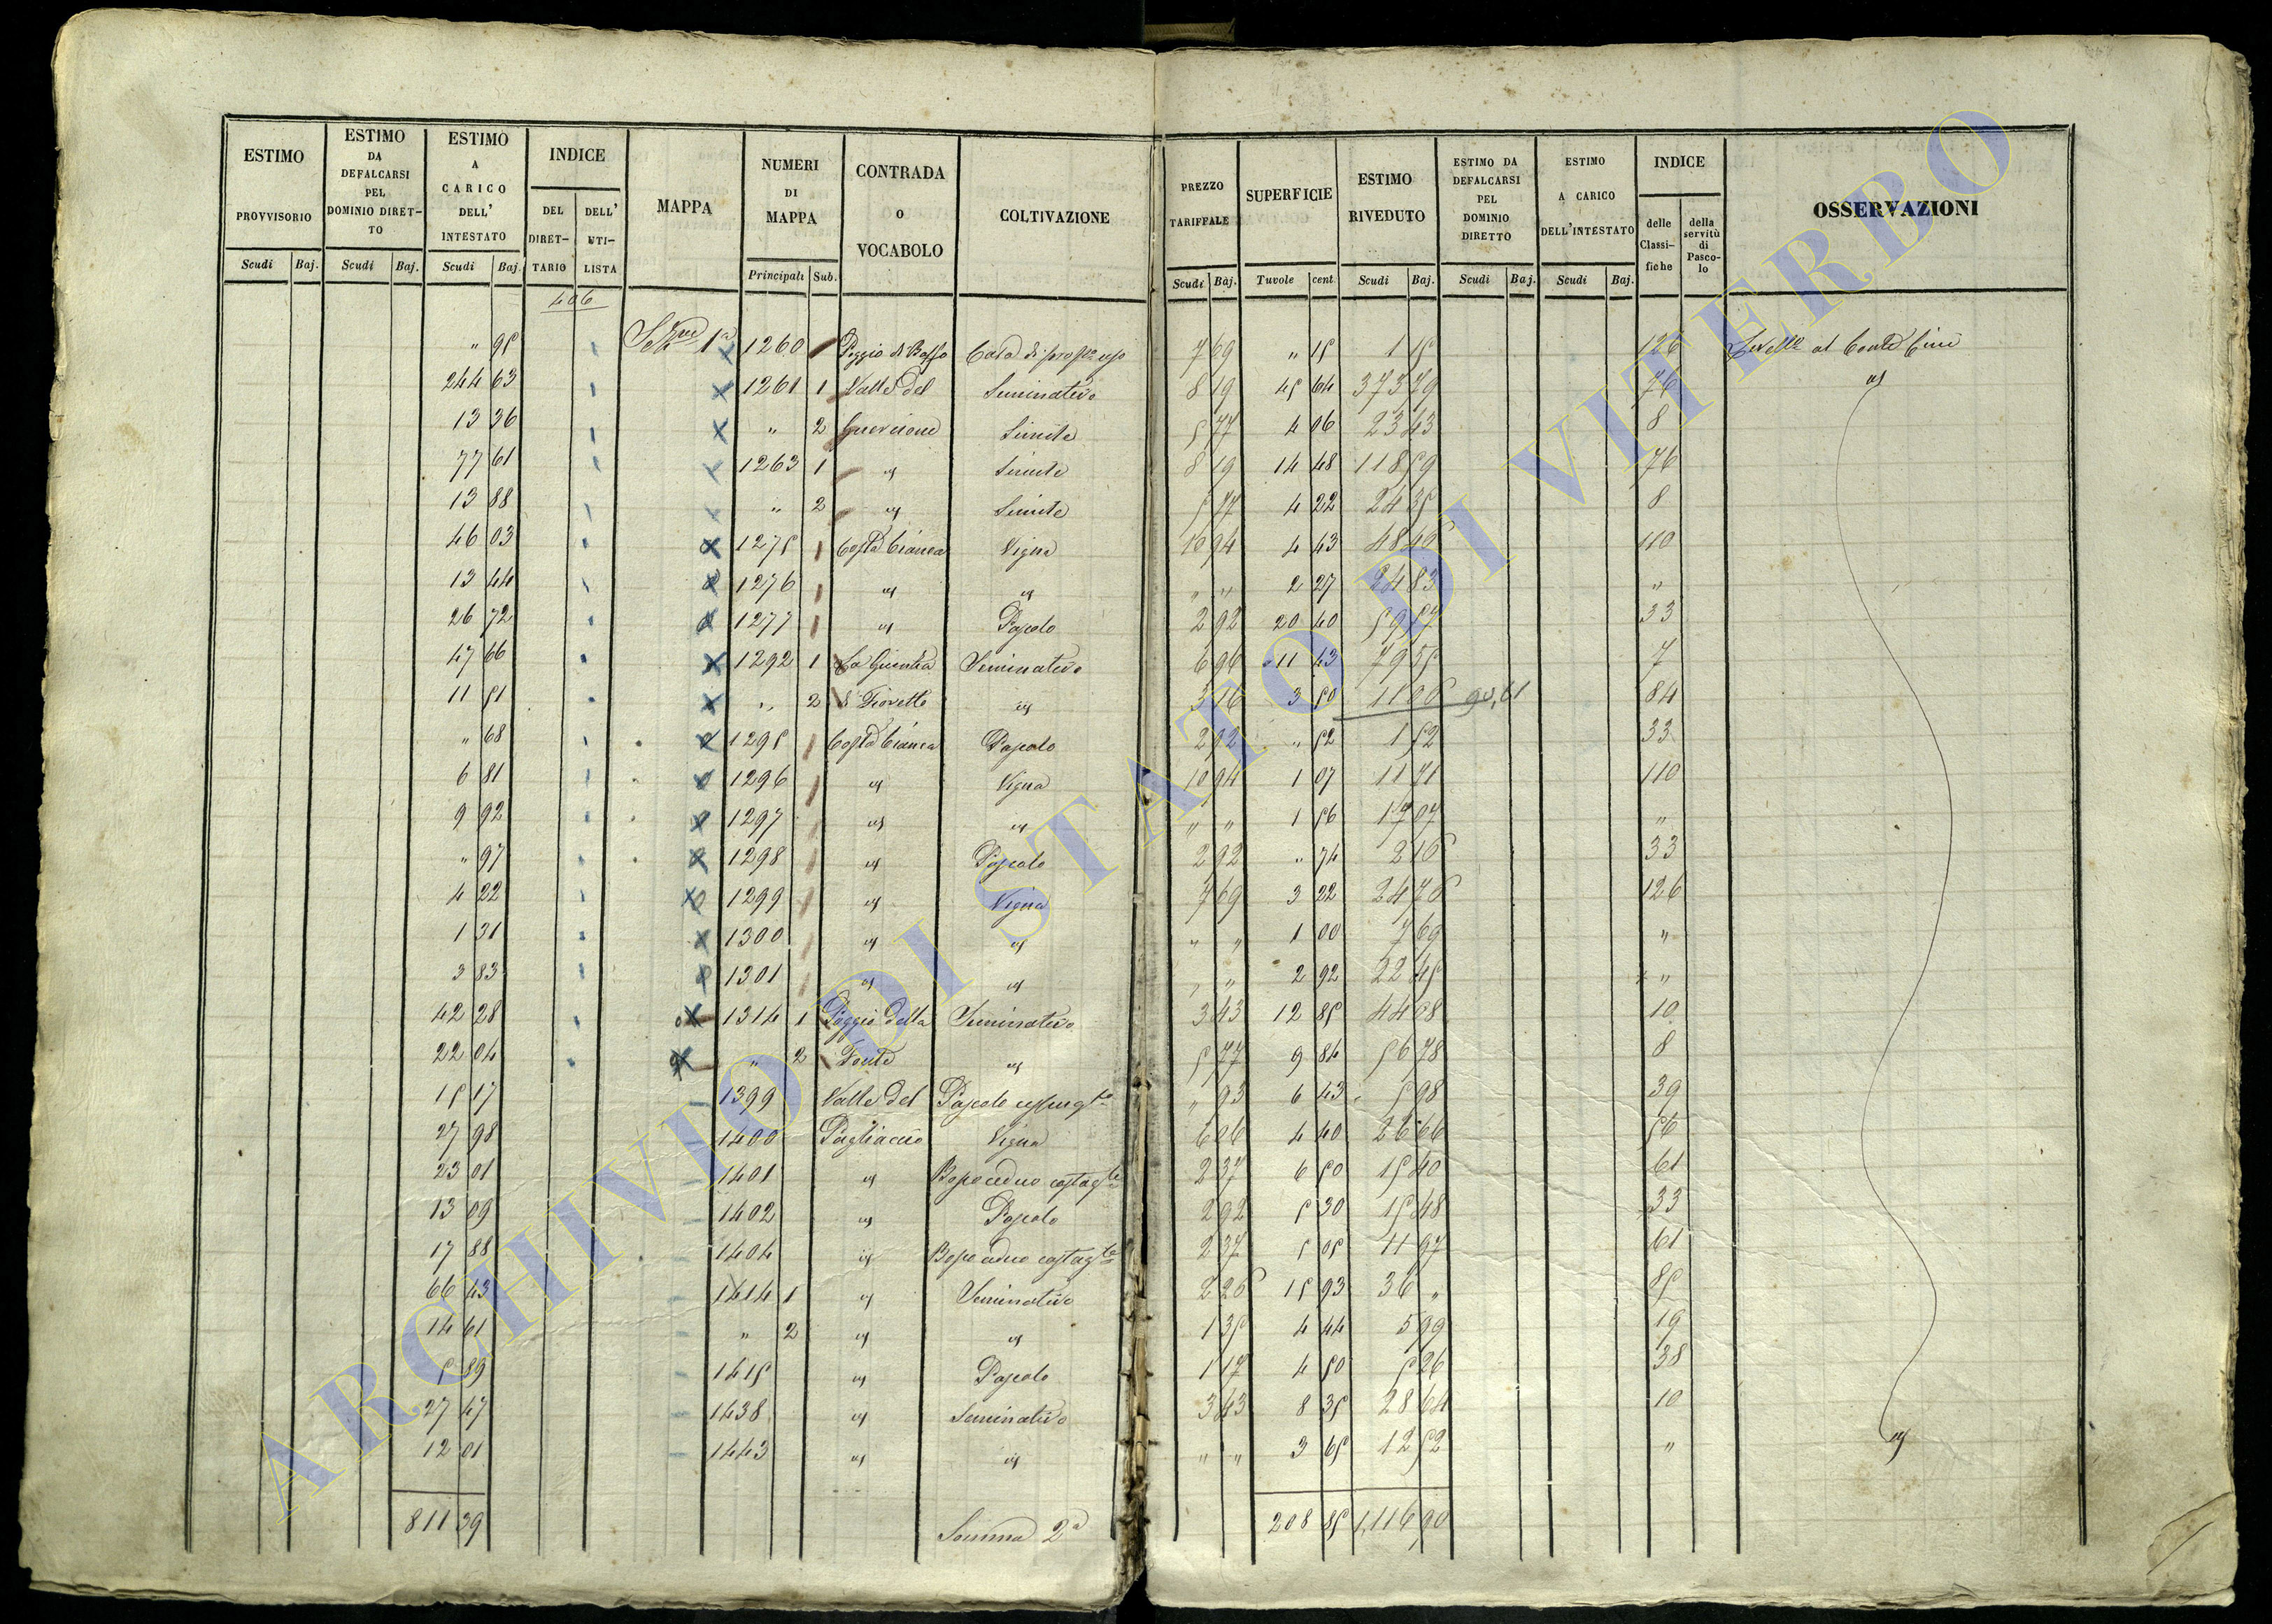 ESTIMO PROVVISORIO | ESTIMO DA DEFALCARSI PEL DOMINIO DIRET-TO | ESTIMO A CARICO DELL' INTESTATO | INDICE DEL DIRET-TARIO DELL' UTI-LISTA | MAPPA | NUMERI DI MAPPA | CONTRADA O VOCABOLO | COLTIVAZIONE | PREZZO TARIFFALE | SUPERFICIE | ESTIMO RIVEDUTO | ESTIMO DA DEFALCARSI PEL DOMINIO DIRETTO | ESTIMO A CARICO DELL'INTESTATO | INDICE delle Classi-fiche della servitù di Pasco-lo | OSSERVAZIONI
Scudi Baj. | Scudi Baj. | Scudi Baj. | Principali Sub. | Scudi Baj. | Tavole cent | Scudi Baj. | Scudi Baj. | Scudi Baj.
406
" 95 | 1ª | 1260 | Poggio di Basso | Casa di | 7 69 | " 15 | 1 15 | 126 | al Conte
244 63 | 1261 1 | Valle del | Seminativo | 8 19 | 45 64 | 373 79 | 76
13 36 | " 2 | Simile | 5 77 | 4 06 | 23 43 | 8
77 61 | 1263 1 | " | Simile | 8 19 | 14 48 | 118 59 | 76
13 88 | " 2 | " | Simile | 5 77 | 4 22 | 24 35 | 8
46 03 | 1275 | Costa | Vigna | 10 94 | 4 43 | 48 46 | 110
13 44 | 1276 | " | " | " " | 2 27 | 24 83 | "
26 72 | 1277 | " | Pascolo | 2 92 | 20 40 | 59 57 | 33
47 66 | 1292 1 | Seminativo | 6 96 | 11 43 | 79 55 | 7
11 51 | " 2 | " | 3 16 | 3 50 | 11 06 | 90,61 | 84
" 68 | 1295 | Costa | Pascolo | 2 92 | " 52 | 1 52 | 33
6 81 | 1296 | " | Vigna | 10 94 | 1 07 | 11 71 | 110
9 92 | 1297 | " | " | " " | 1 56 | 17 07 | "
" 97 | 1298 | " | Pascolo | 2 92 | " 74 | 2 16 | 33
4 22 | 1299 | " | Vigna | 7 69 | 3 22 | 24 76 | 126
1 31 | 1300 | " | " | " " | 1 00 | 7 69 | "
3 83 | 1301 | " | " | " " | 2 92 | 22 45 | "
42 28 | 1314 1 | Poggio della | Seminativo | 3 43 | 12 85 | 44 08 | 10
22 04 | " 2 | Fonte | " | 5 77 | 9 84 | 56 78 | 8
15 17 | 1399 | Valle del | Pascolo | " 93 | 6 43 | 5 98 | 39
27 98 | 1400 | Pagliaccio | Vigna | 6 06 | 4 40 | 26 66 | 56
23 01 | 1401 | " | Bosco ceduo | 2 37 | 6 50 | 15 40 | 61
13 09 | 1402 | " | Pascolo | 2 92 | 5 30 | 15 48 | 33
17 88 | 1404 | " | Bosco ceduo | 2 37 | 5 05 | 11 97 | 61
66 43 | 1414 1 | " | Seminativo | 2 26 | 15 93 | 36 " | 85
14 61 | " 2 | " | " | 1 35 | 4 44 | 5 99 | 19
5 89 | 1415 | " | Pascolo | 1 17 | 4 50 | 5 26 | 38
27 47 | 1438 | " | Seminativo | 3 43 | 8 35 | 28 64 | 10
12 01 | 1443 | " | " | " " | 3 65 | 12 52 | "
811 39 | Somma 2ª | 208 85 | 1,116 90
ARCHIVIO DI STATO DI VITERBO